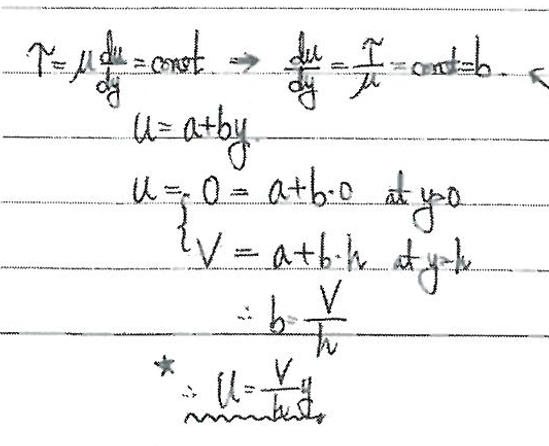 τ = μ du/dy = const. ⇒ du/dy = τ/μ = const = b. ←
u = a + by.
u = { 0 = a + b·0 at y=0
V = a + b·h at y=h
∴ b = V/h
★ ∴ u = V/h y